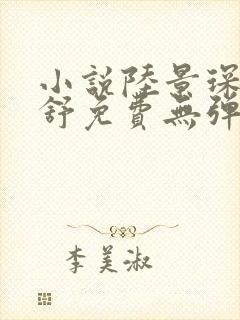 小說陸景琛
舒免費無彈
李美淑